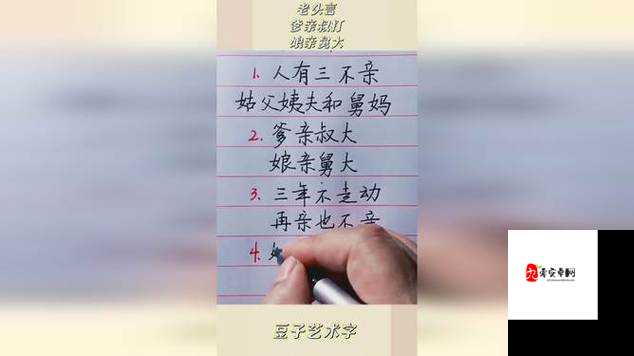 老头言
爹亲叔打
娘亲舅大
1. 人有三不亲
姑父姨夫和舅妈
2. 爹亲叔大
娘亲舅大
3. 三年不走动
再亲也不亲
4.
豆子艺术字